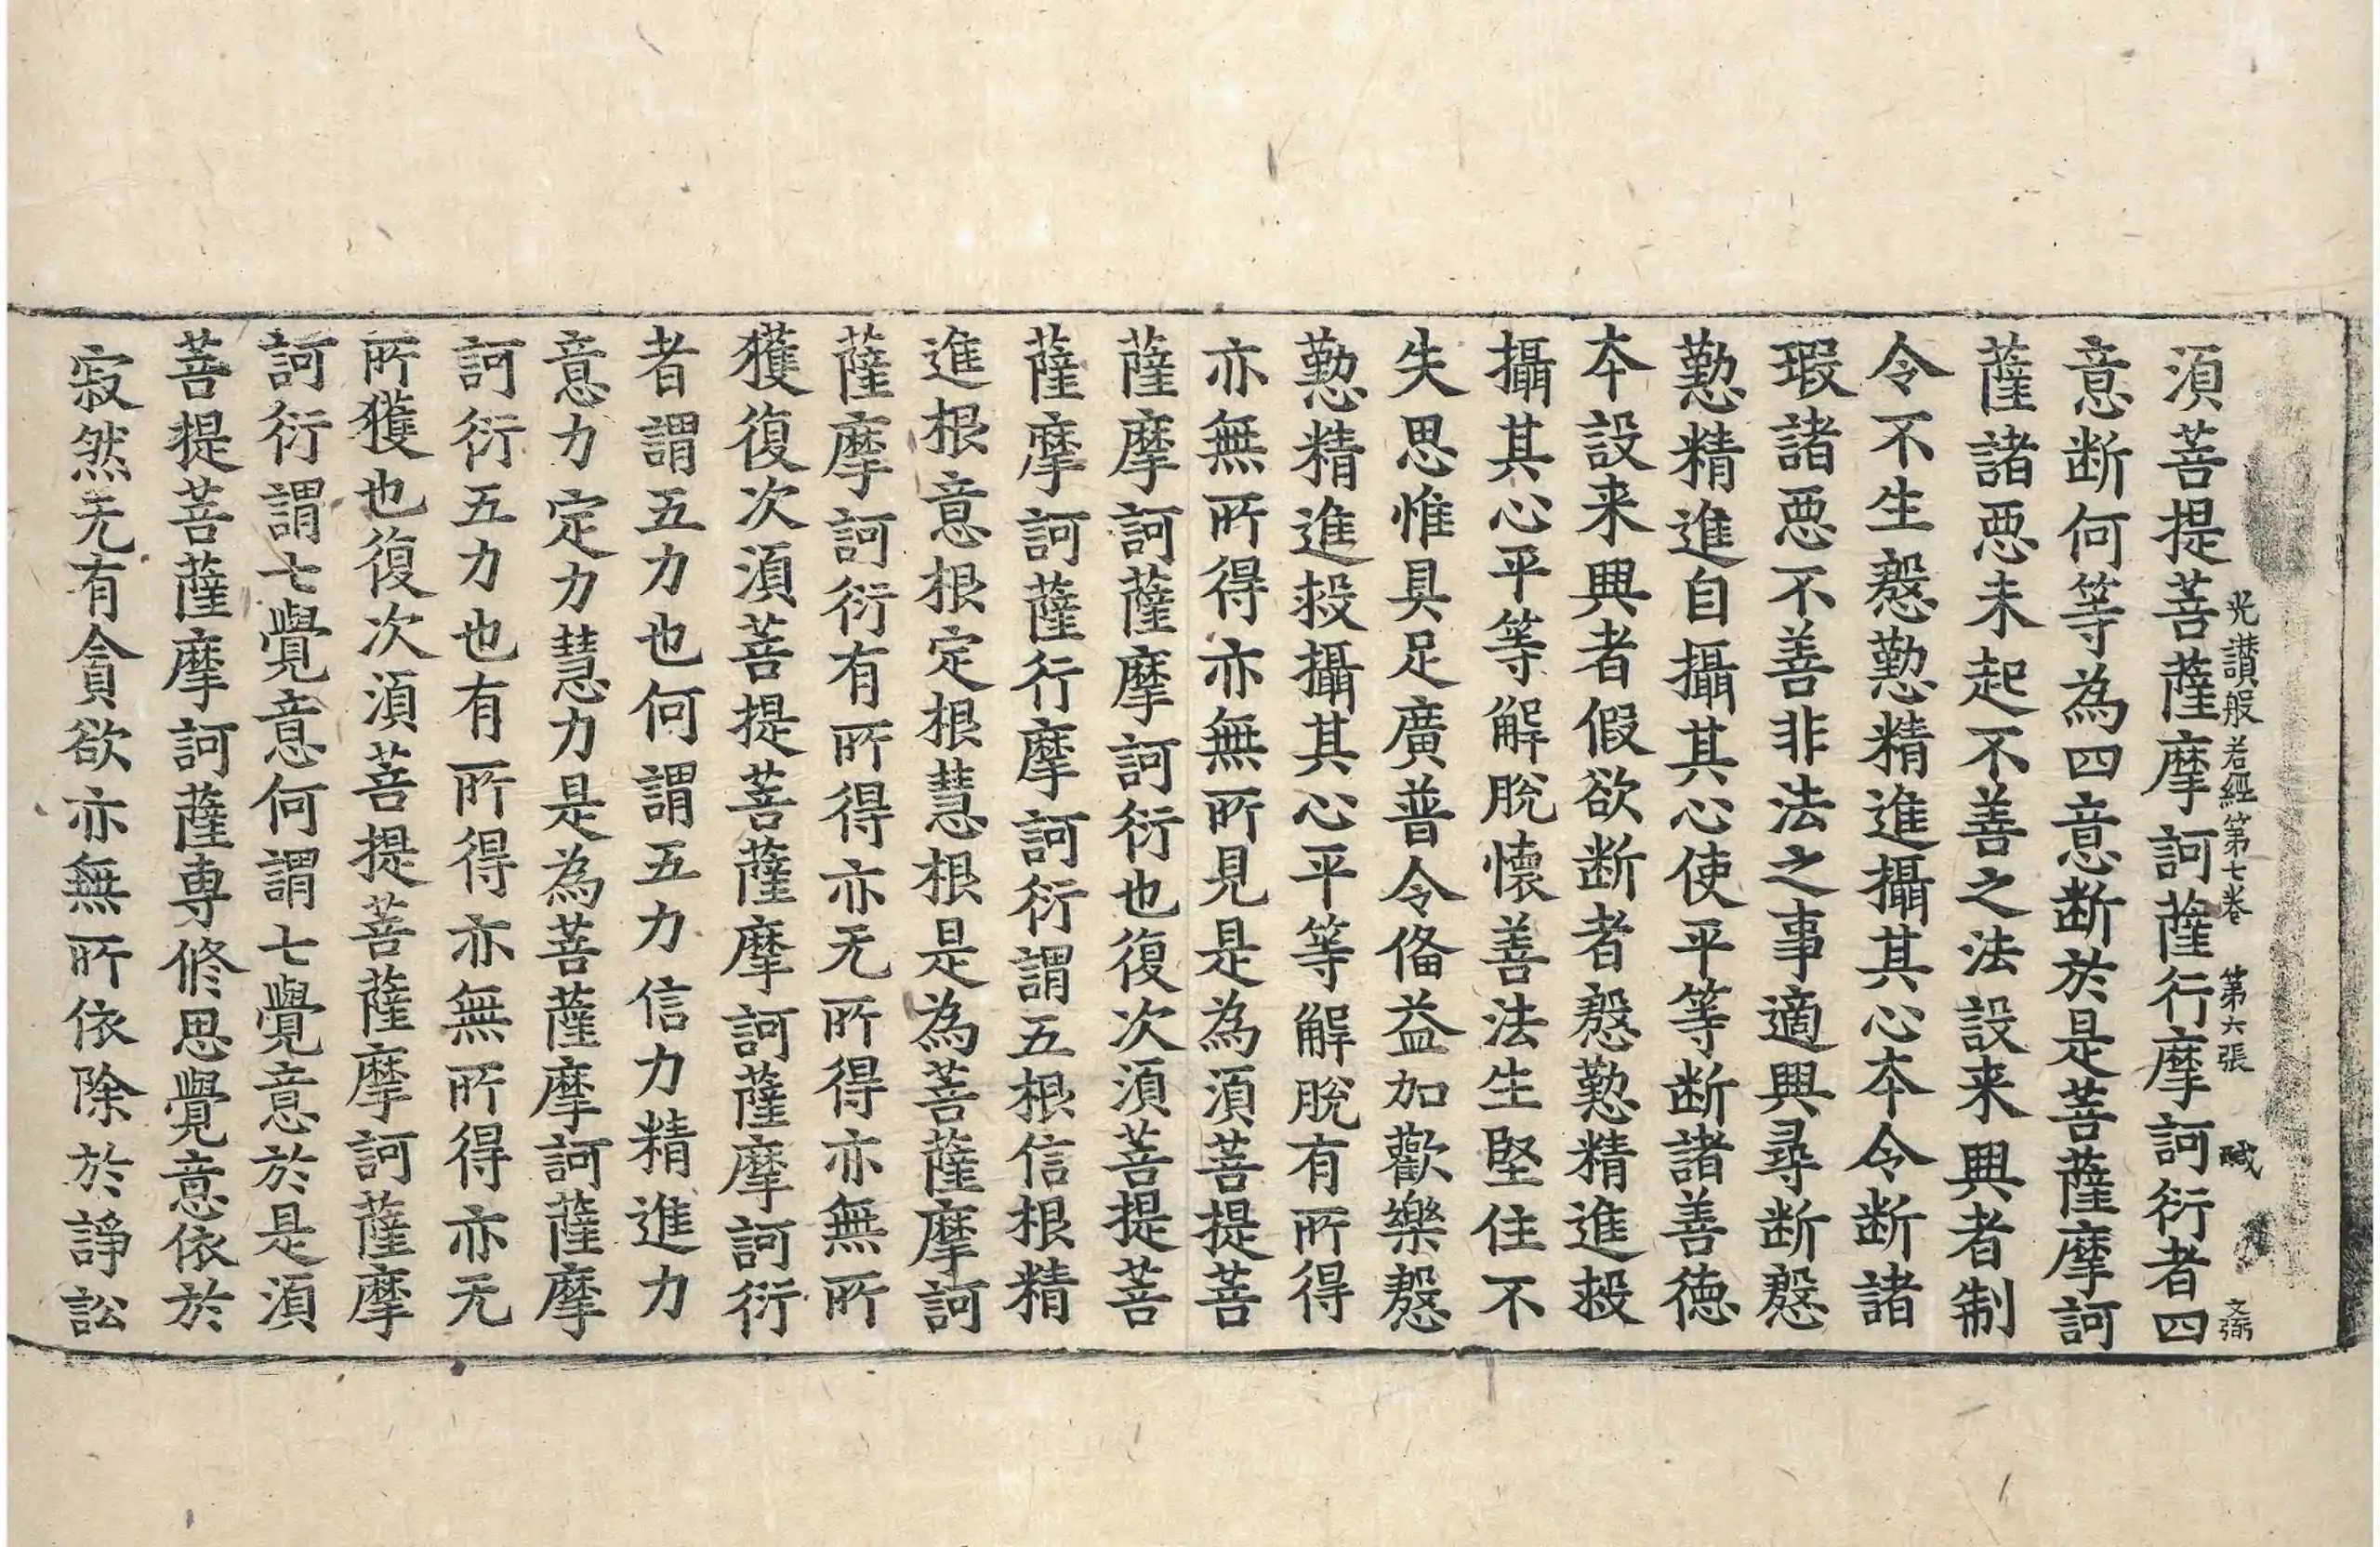 光讃般若經第七卷 第六張 醎 文弼
湏菩提菩薩摩訶薩行摩訶衍者四
意断何等為四意断於是菩薩摩訶
薩諸恶未起不善之法設来興者制
令不生慇懃精進攝其心夲令断諸
瑕諸恶不善非法之事適興尋断慇
懃精進自攝其心使平等断諸善德
夲設来興者假欲断者慇懃精進救
攝其心平等解脫懷善法生堅住不
失思惟具足廣普令俻益加歡樂慇
懃精進救攝其心平等解脫有所得
亦無所得亦無所見是為湏菩提菩
薩摩訶薩摩訶衍也復次湏菩提菩
薩摩訶薩行摩訶衍謂五根信根精
進根意根定根慧根是為菩薩摩訶
薩摩訶衍有所得亦无所得亦無所
獲復次湏菩提菩薩摩訶薩摩訶衍
者謂五力也何謂五力信力精進力
意力定力慧力是為菩薩摩訶薩摩
訶衍五力也有所得亦無所得亦无
所獲也復次湏菩提菩薩摩訶薩摩
訶衍謂七覺意何謂七覺意於是湏
菩提菩薩摩訶薩專修思覺意依於
寂然无有貪欲亦無所依除於諍訟